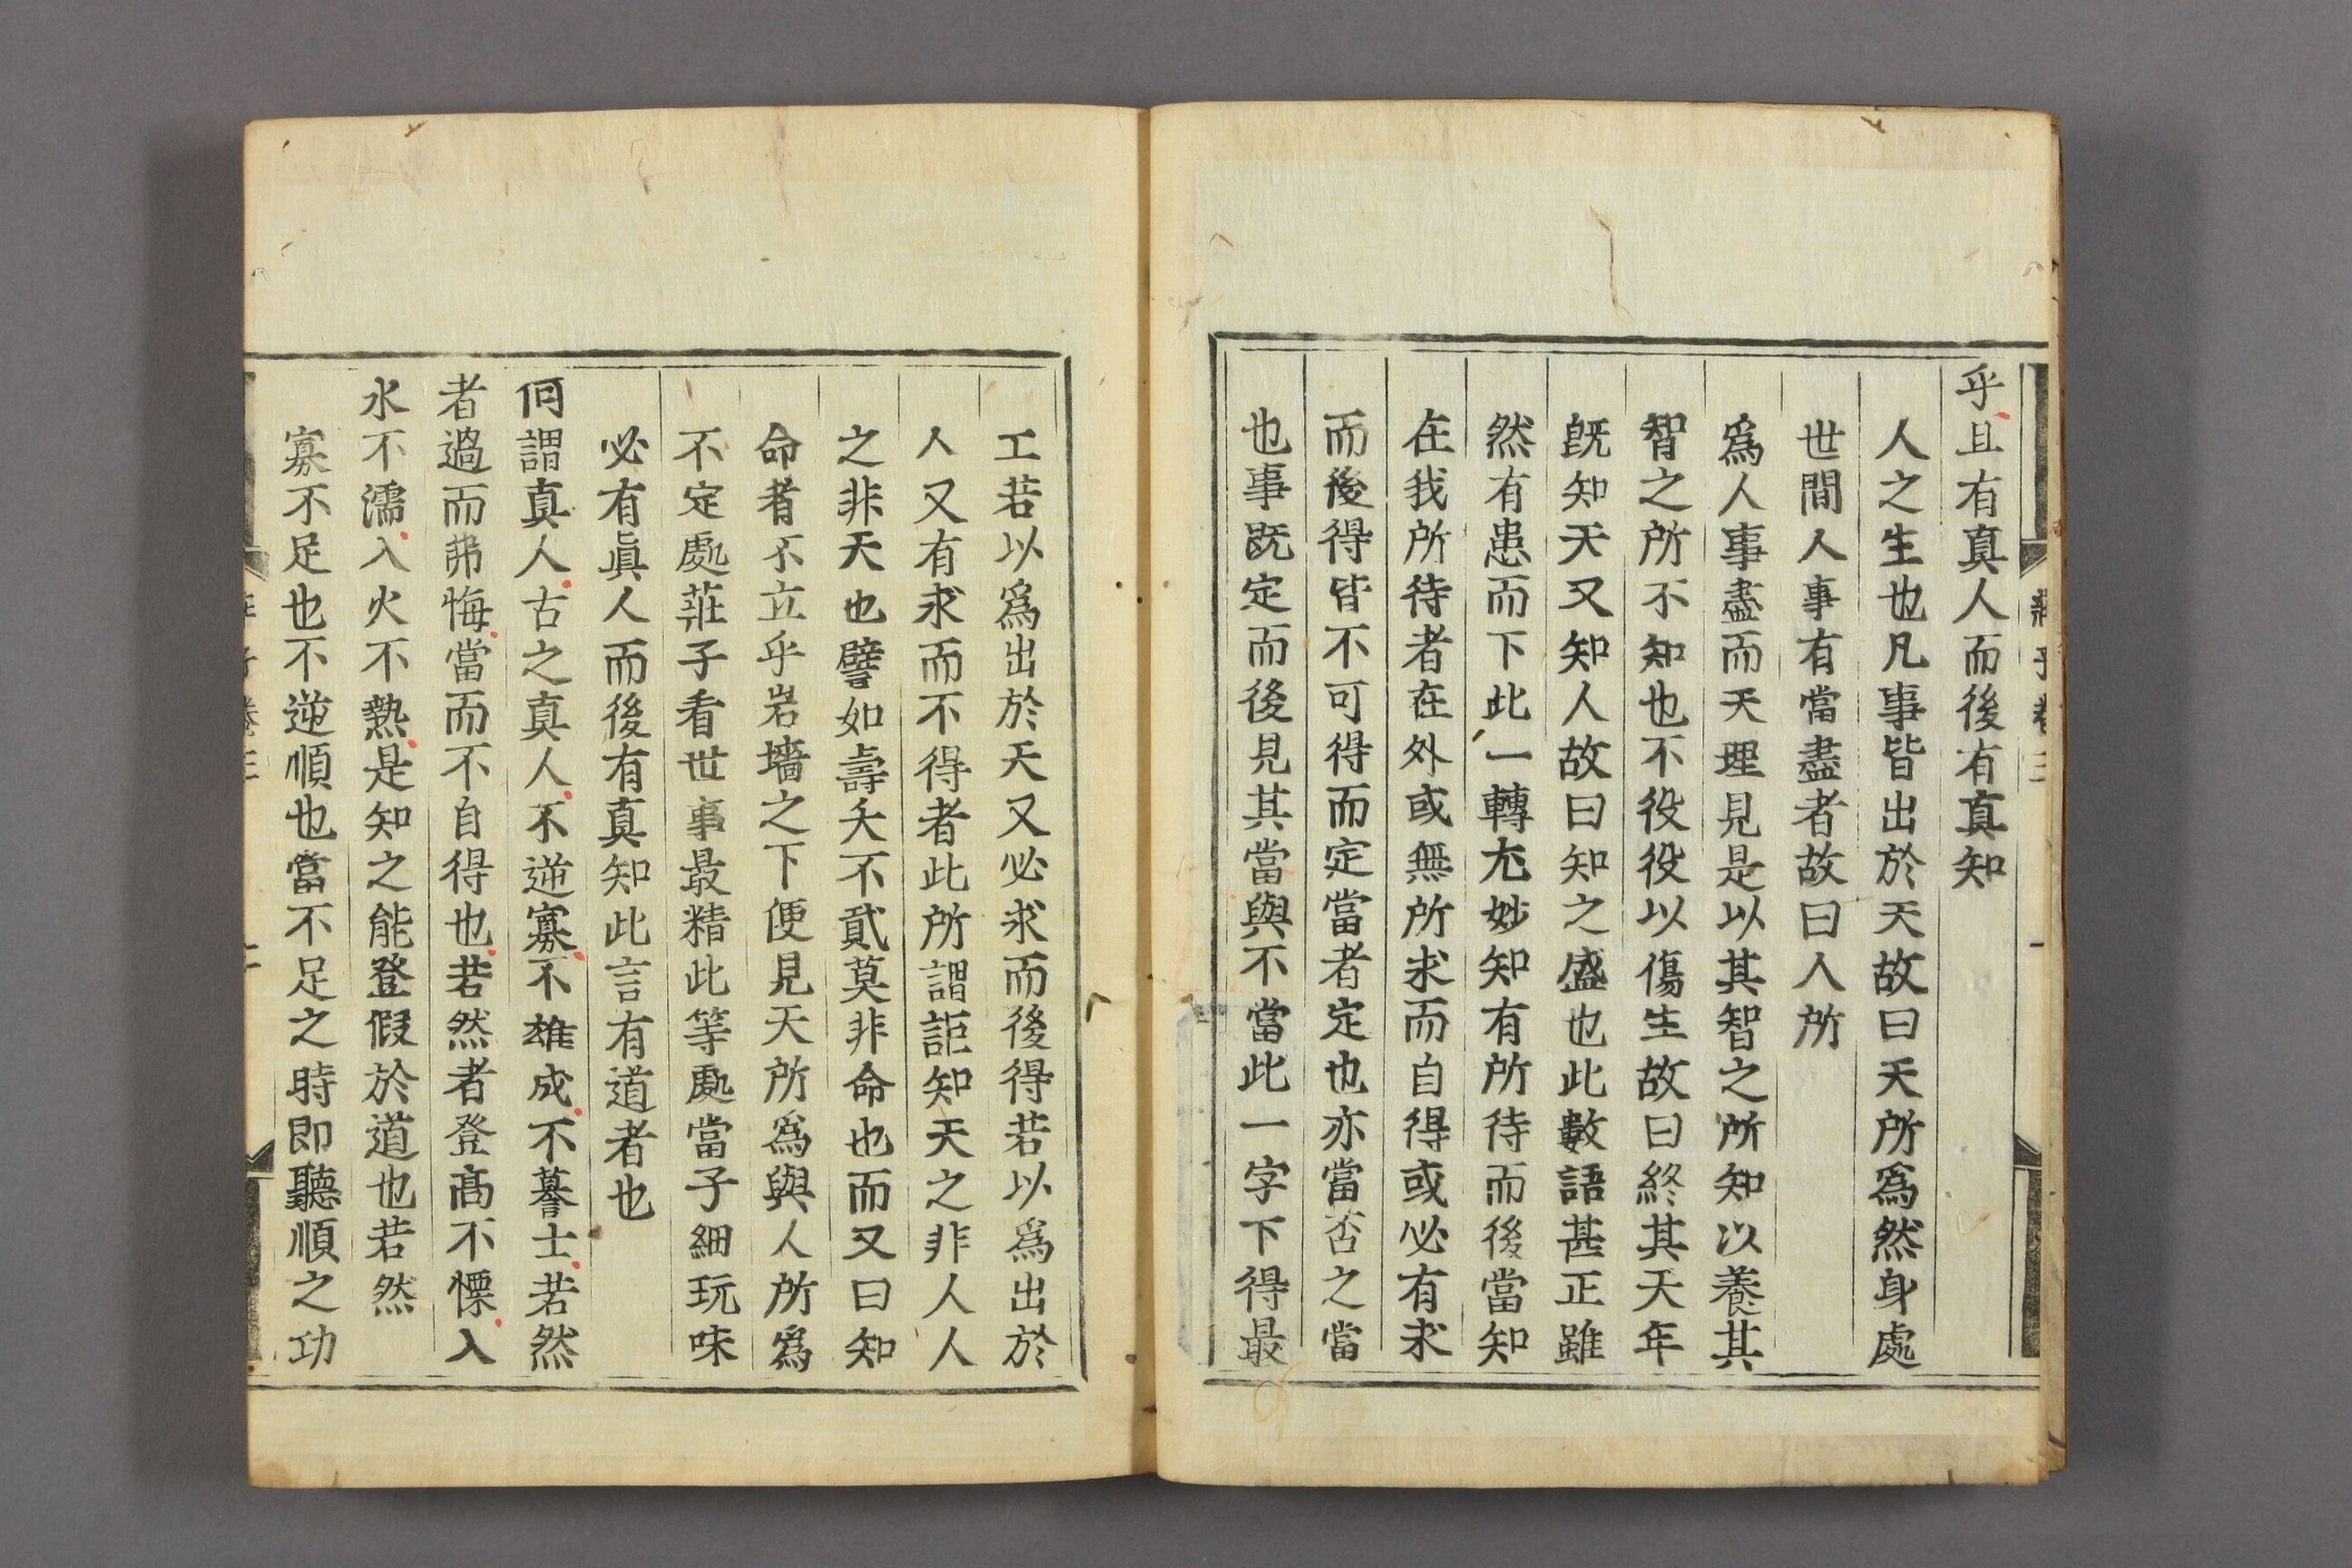 乎且有真人而後有真知
人之生也凡事皆出於天故曰天所爲然身處
世間人事有當盡者故曰人所
爲人事盡而天理見是以其智之所知以養其
智之所不知也不役役以傷生故曰終其天年
旣知天又知人故曰知之盛也此數語甚正雖
然有患而下此一轉尤妙知有所待而後當知
在我所待者在外或無所求而自得或必有求
而後得皆不可得而定當者定也亦當否之當
也事旣定而後見其當與不當此一字下得最
工若以爲出於天又必求而後得若以爲出於
人又有求而不得者此所謂詎知天之非人人
之非天也譬如壽夭不貳莫非命也而又曰知
命者不立乎岩墻之下便見天所爲與人所爲
不定處莊子看世事最精此等處當子細玩味
必有眞人而後有真知此言有道者也
何謂真人古之真人不逆寡不雄成不謩士若然
者過而弗悔當而不自得也若然者登髙不慄入
水不濡入火不熱是知之能登假於道也若然
寡不足也不逆順也當不足之時即聽順之功